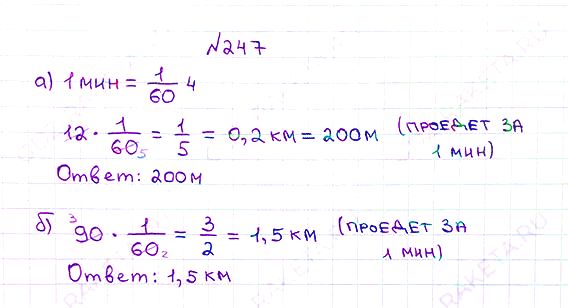 №247
а) 1 мин = 1/60 ч
12 · 1/60₅ = 1/5 = 0,2 км = 200 м (проедет за
1 мин)
Ответ: 200 м
б) ³90 · 1/60₂ = 3/2 = 1,5 км (проедет за
1 мин)
Ответ: 1,5 км